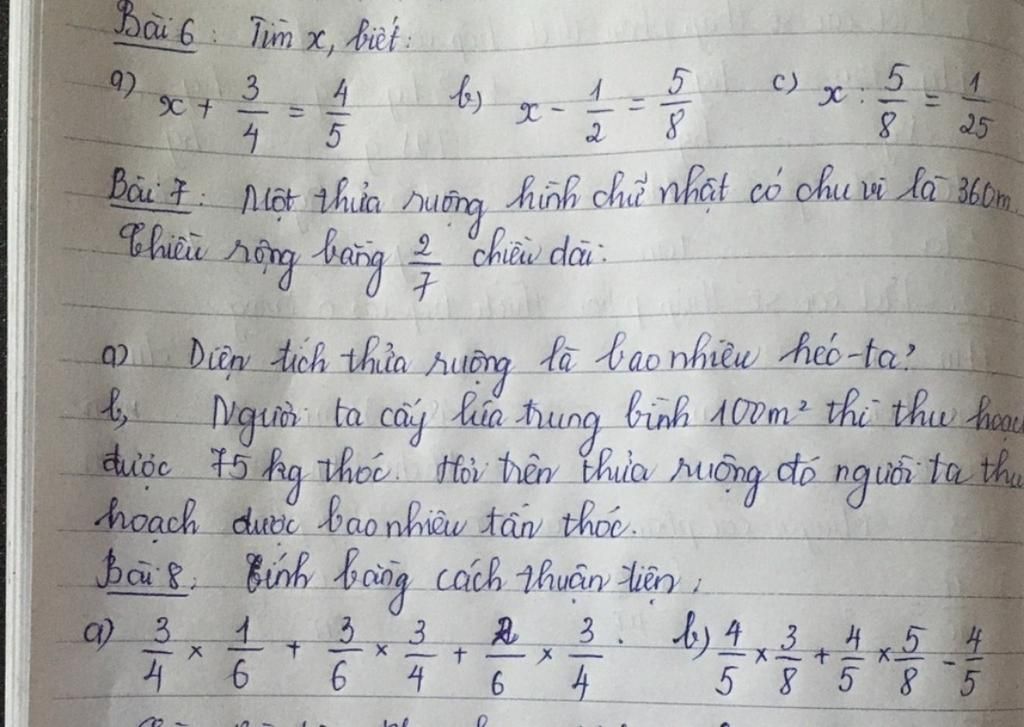 Bài 6: Tìm x, biết:
a) x + 3/4 = 4/5 b) x - 1/2 = 5/8 c) x : 5/8 = 1/25
Bài 7: Một thửa ruộng hình chữ nhật có chu vi là 360m.
Chiều rộng bằng 2/7 chiều dài.
a) Diện tích thửa ruộng là bao nhiêu héc-ta?
b, Người ta cấy lúa trung bình 100m² thì thu hoạch
được 75 kg thóc. Hỏi trên thửa ruộng đó người ta thu
hoạch được bao nhiêu tấn thóc.
Bài 8: Tính bằng cách thuận tiện:
a) 3/4 × 1/6 + 3/6 × 3/4 + 2/6 × 3/4. b) 4/5 × 3/8 + 4/5 × 5/8 - 4/5